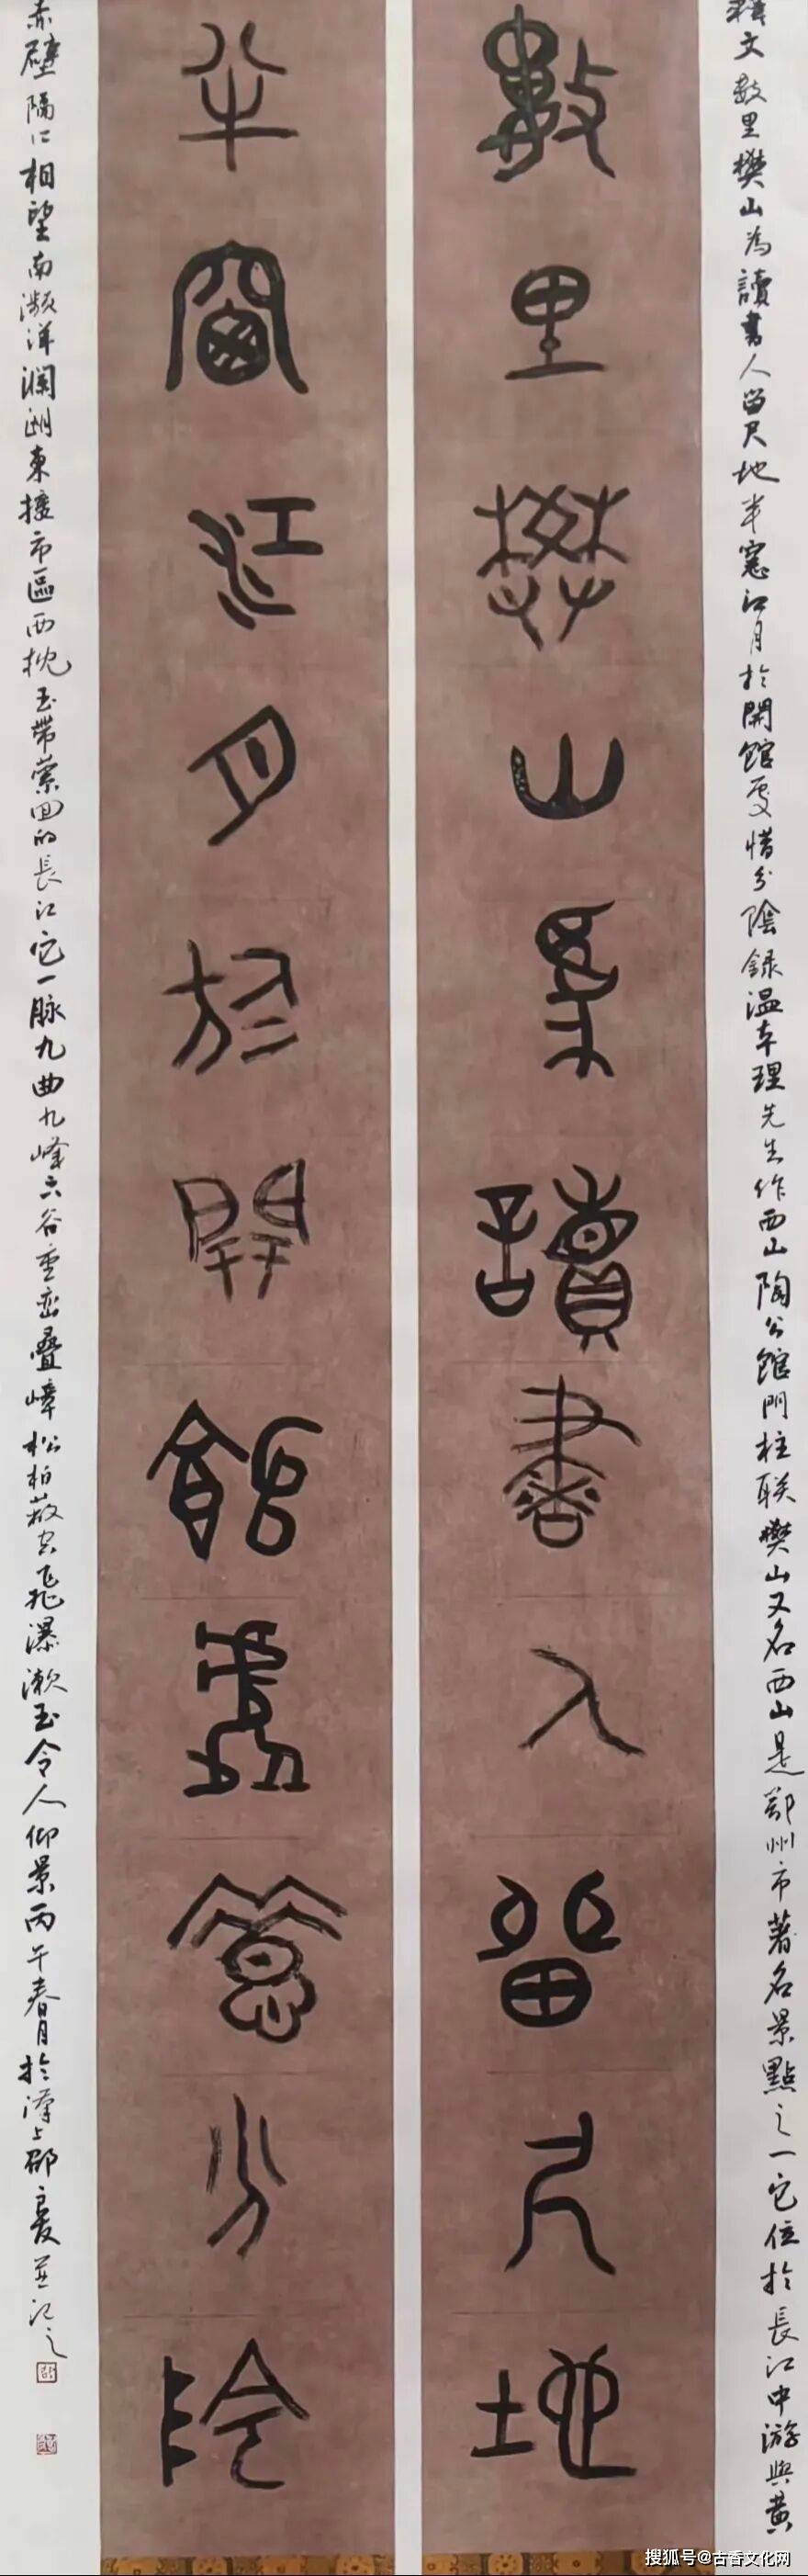 釋文數里樊山為讀書人留尺地半窻江月於開館處惜分陰録温本理先生作西山陶公館門柱联樊山又名西山是鄂州市著名景點之一它位於長江中游與黃
數里樊山為讀書人留尺地
半窗江月於開館處惜分陰
赤壁隔江相望南瀕洋瀾湖東接市區西枕玉帶縈回的長江它一脉九曲九峰六谷重巒叠嶂松柏蔽空飛瀑漱玉令人仰景丙午春月於漢上並記之
搜狐号@古香文化网